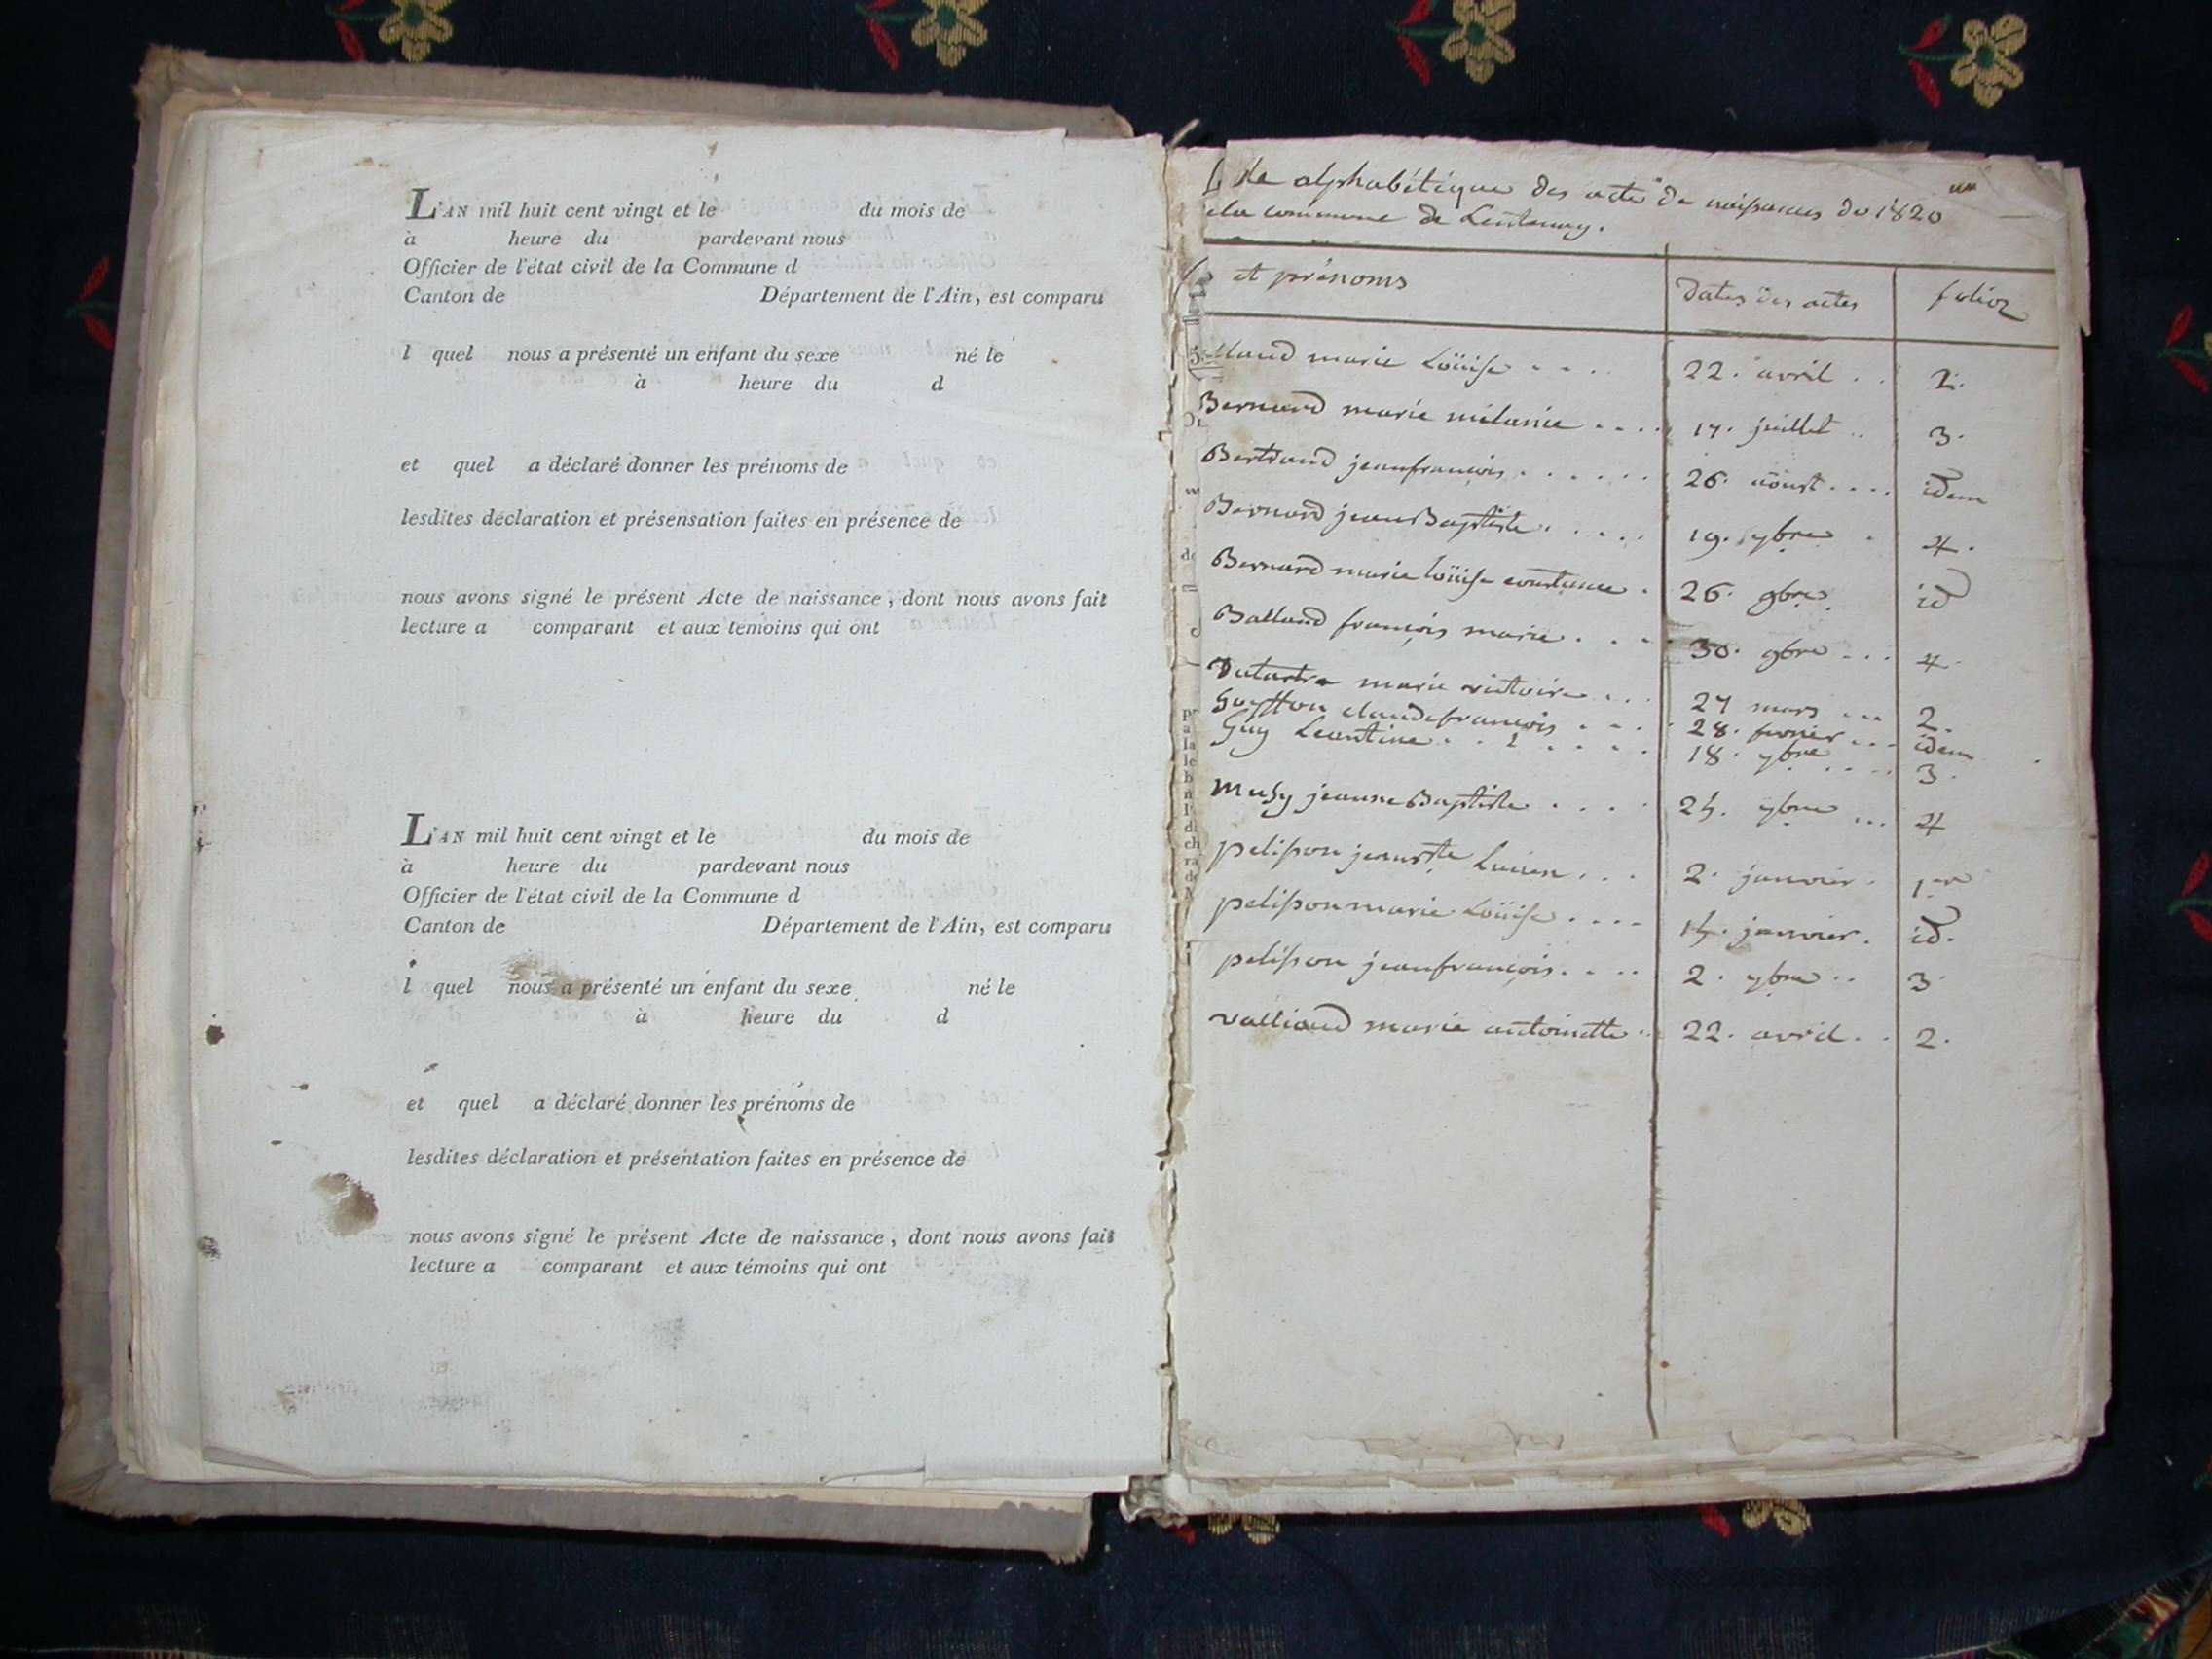 L'AN mil huit cent vingt et le du mois de
à heure du pardevant nous
Officier de l'état civil de la Commune d
Canton de Département de l'Ain, est comparu
l quel nous a présenté un enfant du sexe né le
à heure du d
et quel a déclaré donner les prénoms de
lesdites déclaration et présensation faites en présence de
nous avons signé le présent Acte de naissance, dont nous avons fait
lecture a comparant et aux témoins qui ont
L'AN mil huit cent vingt et le du mois de
à heure du pardevant nous
Officier de l'état civil de la Commune d
Canton de Département de l'Ain, est comparu
l quel nous a présenté un enfant du sexe né le
à heure du d
et quel a déclaré donner les prénoms de
lesdites déclaration et présentation faites en présence de
nous avons signé le présent Acte de naissance, dont nous avons fait
lecture a comparant et aux témoins qui ont
alphabétique des actes de naissances de 1820
la commune de Lentenay.
et prénoms dates des actes folioz
lland marie Loüise .... 22. avril .. 2.
Bernard marie mélanie .... 17. juillet .. 3.
Bertrand jeanfrançois ...... 26. aöust .... idem
Bernard jean Baptiste ..... 19. 7bre . 4.
Bernard marie loüise constance . 26. 9bre. id
Balland françois marie .... 30. 9bre ... 4.
Dutartre marie victoire ... 27 mars ... 2.
Guytton claudefrançois .... 28. fevrier ... idem
Guy Leontine ...... 18. 7bre .... 3.
Musy jeanne Baptiste .... 24. 7bre ... 4
pelisson jeanBte Lucien ... 2. janvier . 1er
pelisson marie Loüise .... 14. janvier. id.
pelisson jeanfrançois .... 2. 7bre .. 3.
valliand marie antoinette .. 22. avril .. 2.